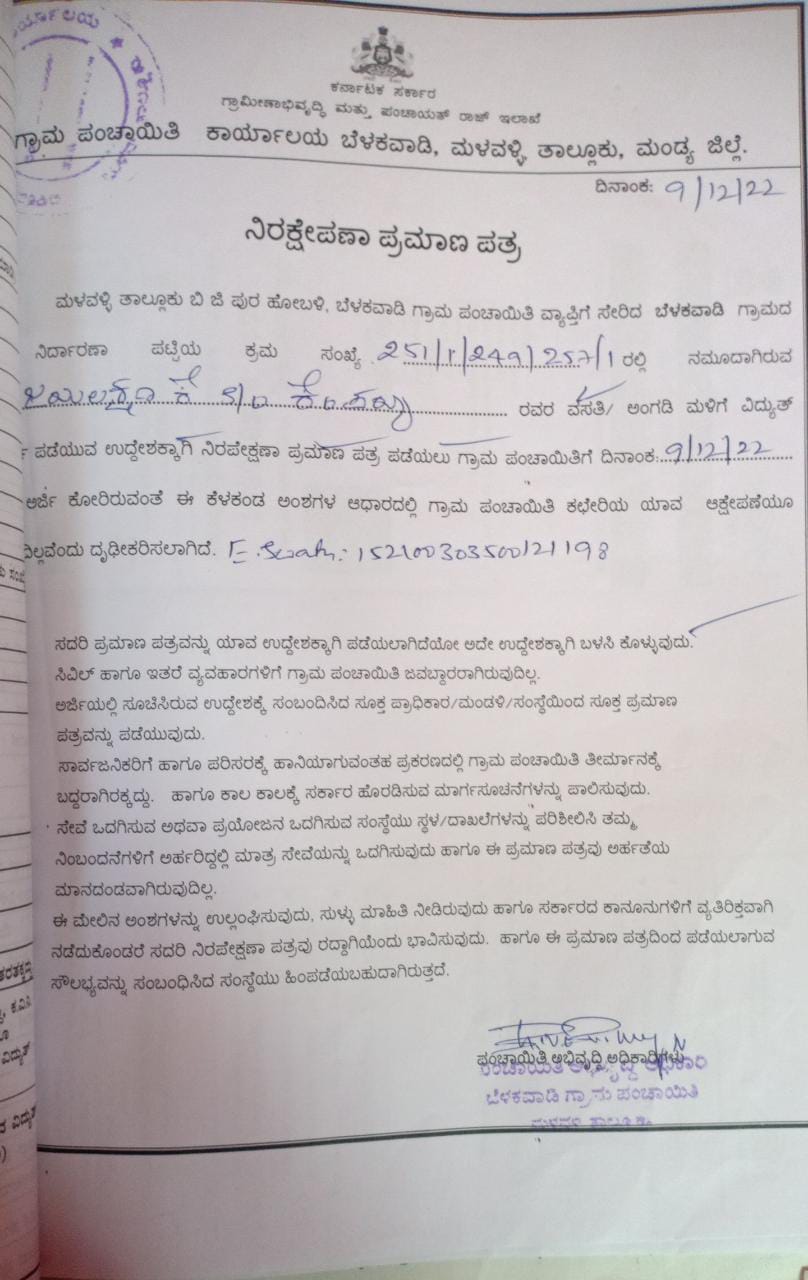 ಕರ್ನಾಟಕ ಸರ್ಕಾರ
ಗ್ರಾಮೀಣಾಭಿವೃದ್ಧಿ ಮತ್ತು ಪಂಚಾಯತ್ ರಾಜ್ ಇಲಾಖೆ
ಗ್ರಾಮ ಪಂಚಾಯಿತಿ ಕಾರ್ಯಾಲಯ ಬೆಳಕವಾಡಿ, ಮಳವಳ್ಳಿ ತಾಲ್ಲೂಕು, ಮಂಡ್ಯ ಜಿಲ್ಲೆ.
ದಿನಾಂಕ: 9/12/22
ನಿರಕ್ಷೇಪಣಾ ಪ್ರಮಾಣ ಪತ್ರ
ಮಳವಳ್ಳಿ ತಾಲ್ಲೂಕು ಬಿ ಜಿ ಪುರ ಹೋಬಳಿ, ಬೆಳಕವಾಡಿ ಗ್ರಾಮ ಪಂಚಾಯಿತಿ ವ್ಯಾಪ್ತಿಗೆ ಸೇರಿದ ಬೆಳಕವಾಡಿ ಗ್ರಾಮದ
ನಿರ್ದಾರಣಾ ಪಟ್ಟಿಯ ಕ್ರಮ ಸಂಖ್ಯೆ 251/1/249/257/1 ರಲ್ಲಿ ನಮೂದಾಗಿರುವ
ರವರ ವಸತಿ/ ಅಂಗಡಿ ಮಳಿಗೆ ವಿದ್ಯುತ್
ಪಡೆಯುವ ಉದ್ದೇಶಕ್ಕಾಗಿ ನಿರಪೇಕ್ಷಣಾ ಪ್ರಮಾಣ ಪತ್ರ ಪಡೆಯಲು ಗ್ರಾಮ ಪಂಚಾಯಿತಿಗೆ ದಿನಾಂಕ: 9/12/22
ಅರ್ಜಿ ಕೋರಿರುವಂತೆ ಈ ಕೆಳಕಂಡ ಅಂಶಗಳ ಆಧಾರದಲ್ಲಿ ಗ್ರಾಮ ಪಂಚಾಯಿತಿ ಕಛೇರಿಯ ಯಾವ ಆಕ್ಷೇಪಣೆಯೂ
ಇಲ್ಲವೆಂದು ದೃಢೀಕರಿಸಲಾಗಿದೆ. E. Swathu: 152100303500121198
ಸದರಿ ಪ್ರಮಾಣ ಪತ್ರವನ್ನು ಯಾವ ಉದ್ದೇಶಕ್ಕಾಗಿ ಪಡೆಯಲಾಗಿದೆಯೋ ಅದೇ ಉದ್ದೇಶಕ್ಕಾಗಿ ಬಳಸಿ ಕೊಳ್ಳುವುದು.
ಸಿವಿಲ್ ಹಾಗೂ ಇತರೆ ವ್ಯವಹಾರಗಳಿಗೆ ಗ್ರಾಮ ಪಂಚಾಯಿತಿ ಜವಬ್ದಾರರಾಗಿರುವುದಿಲ್ಲ.
ಅರ್ಜಿಯಲ್ಲಿ ಸೂಚಿಸಿರುವ ಉದ್ದೇಶಕ್ಕೆ ಸಂಬಂದಿಸಿದ ಸೂಕ್ತ ಪ್ರಾಧಿಕಾರ/ಮಂಡಳಿ/ಸಂಸ್ಥೆಯಿಂದ ಸೂಕ್ತ ಪ್ರಮಾಣ
ಪತ್ರವನ್ನು ಪಡೆಯುವುದು.
ಸಾರ್ವಜನಿಕರಿಗೆ ಹಾಗೂ ಪರಿಸರಕ್ಕೆ ಹಾನಿಯಾಗುವಂತಹ ಪ್ರಕರಣದಲ್ಲಿ ಗ್ರಾಮ ಪಂಚಾಯಿತಿ ತೀರ್ಮಾನಕ್ಕೆ
ಬದ್ದರಾಗಿರತಕ್ಕದ್ದು. ಹಾಗೂ ಕಾಲ ಕಾಲಕ್ಕೆ ಸರ್ಕಾರ ಹೊರಡಿಸುವ ಮಾರ್ಗಸೂಚನೆಗಳನ್ನು ಪಾಲಿಸುವುದು.
ಸೇವೆ ಒದಗಿಸುವ ಅಥವಾ ಪ್ರಯೋಜನ ಒದಗಿಸುವ ಸಂಸ್ಥೆಯು ಸ್ಥಳ/ದಾಖಲೆಗಳನ್ನು ಪರಿಶೀಲಿಸಿ ತಮ್ಮ
ನಿಂಬಂದನೆಗಳಿಗೆ ಅರ್ಹರಿದ್ದಲ್ಲಿ ಮಾತ್ರ ಸೇವೆಯನ್ನು ಒದಗಿಸುವುದು ಹಾಗೂ ಈ ಪ್ರಮಾಣ ಪತ್ರವು ಅರ್ಹತೆಯ
ಮಾನದಂಡವಾಗಿರುವುದಿಲ್ಲ.
ಈ ಮೇಲಿನ ಅಂಶಗಳನ್ನು ಉಲ್ಲಂಘಿಸುವುದು, ಸುಳ್ಳು ಮಾಹಿತಿ ನೀಡಿರುವುದು ಹಾಗೂ ಸರ್ಕಾರದ ಕಾನೂನುಗಳಿಗೆ ವ್ಯತಿರಿಕ್ತವಾಗಿ
ನಡೆದುಕೊಂಡರೆ ಸದರಿ ನಿರಪೇಕ್ಷಣಾ ಪತ್ರವು ರದ್ದಾಗಿಯೆಂದು ಭಾವಿಸುವುದು. ಹಾಗೂ ಈ ಪ್ರಮಾಣ ಪತ್ರದಿಂದ ಪಡೆಯಲಾಗುವ
ಸೌಲಭ್ಯವನ್ನು ಸಂಬಂಧಿಸಿದ ಸಂಸ್ಥೆಯು ಹಿಂಪಡೆಯಬಹುದಾಗಿರುತ್ತದೆ.
ಪಂಚಾಯಿತಿ ಅಭಿವೃದ್ಧಿ ಅಧಿಕಾರಿಗಳು
ಪಂಚಾಯಿತಿ ಅಭಿವೃದ್ಧಿ ಅಧಿಕಾರಿ
ಬೆಳಕವಾಡಿ ಗ್ರಾಮ ಪಂಚಾಯಿತಿ